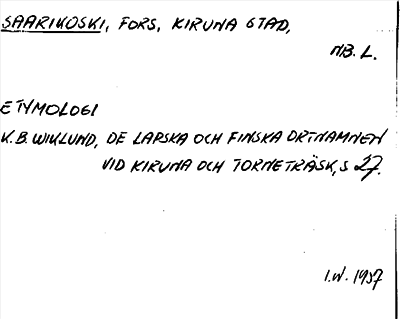 SAARIKOSKI, FORS, KIRUNA STAD,
NB. L.
ETYMOLOGI
K.B. WIKLUND, DE LAPSKA OCH FINSKA ORTNAMNEN
VID KIRUNA OCH TORNETRÄSK, S 27.
I.W. 1957